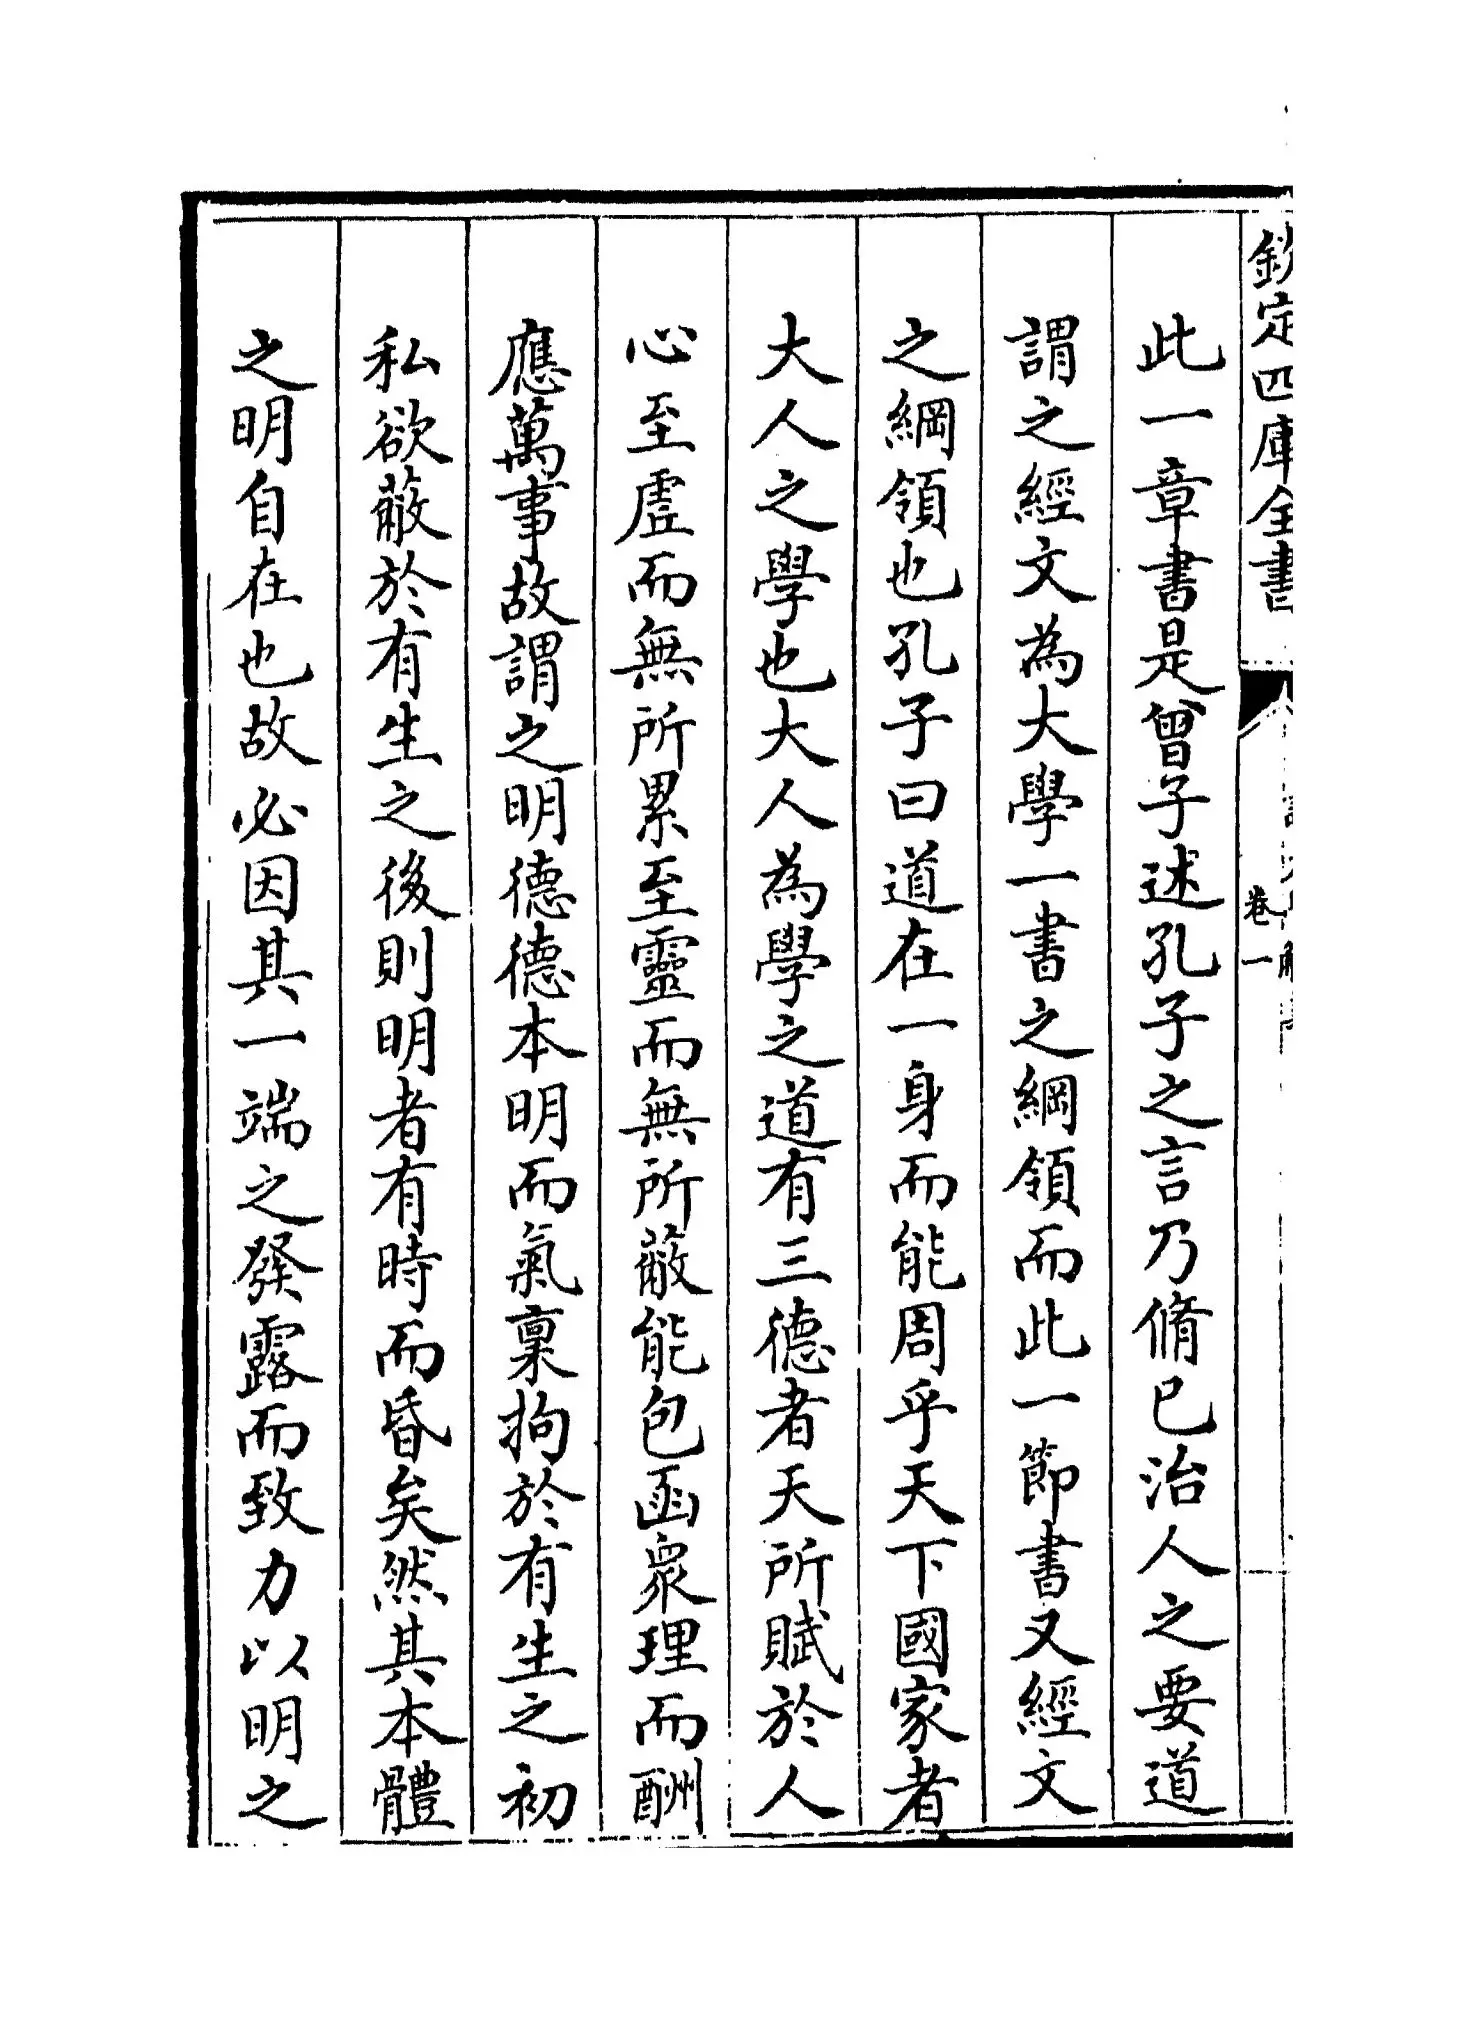 欽定四庫全書
卷一
此一章書是曾子述孔子之言乃脩已治人之要道
謂之經文為大學一書之綱領而此一節書又經文
之綱領也孔子曰道在一身而能周乎天下國家者
大人之學也大人為學之道有三德者天所賦於人
心至虛而無所累至靈而無所蔽能包函衆理而酬
應萬事故謂之明德德本明而氣稟拘於有生之初
私欲蔽於有生之後則明者有時而昏矣然其本體
之明自在也故必因其一端之發露而致力以明之